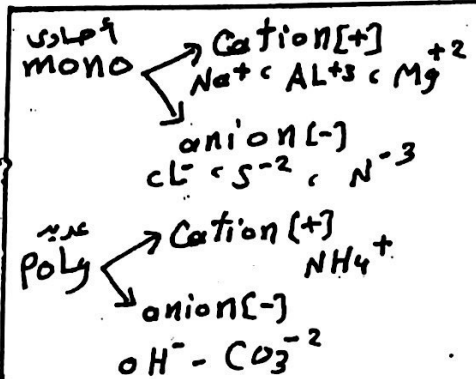 أحادى
mono
Cation [+]
Na+ ، AL+3 ، Mg+2
anion [-]
cL- ، S-2 ، N-3
عديد
Poly
Cation [+]
NH4+
anion [-]
oH- - CO3-2